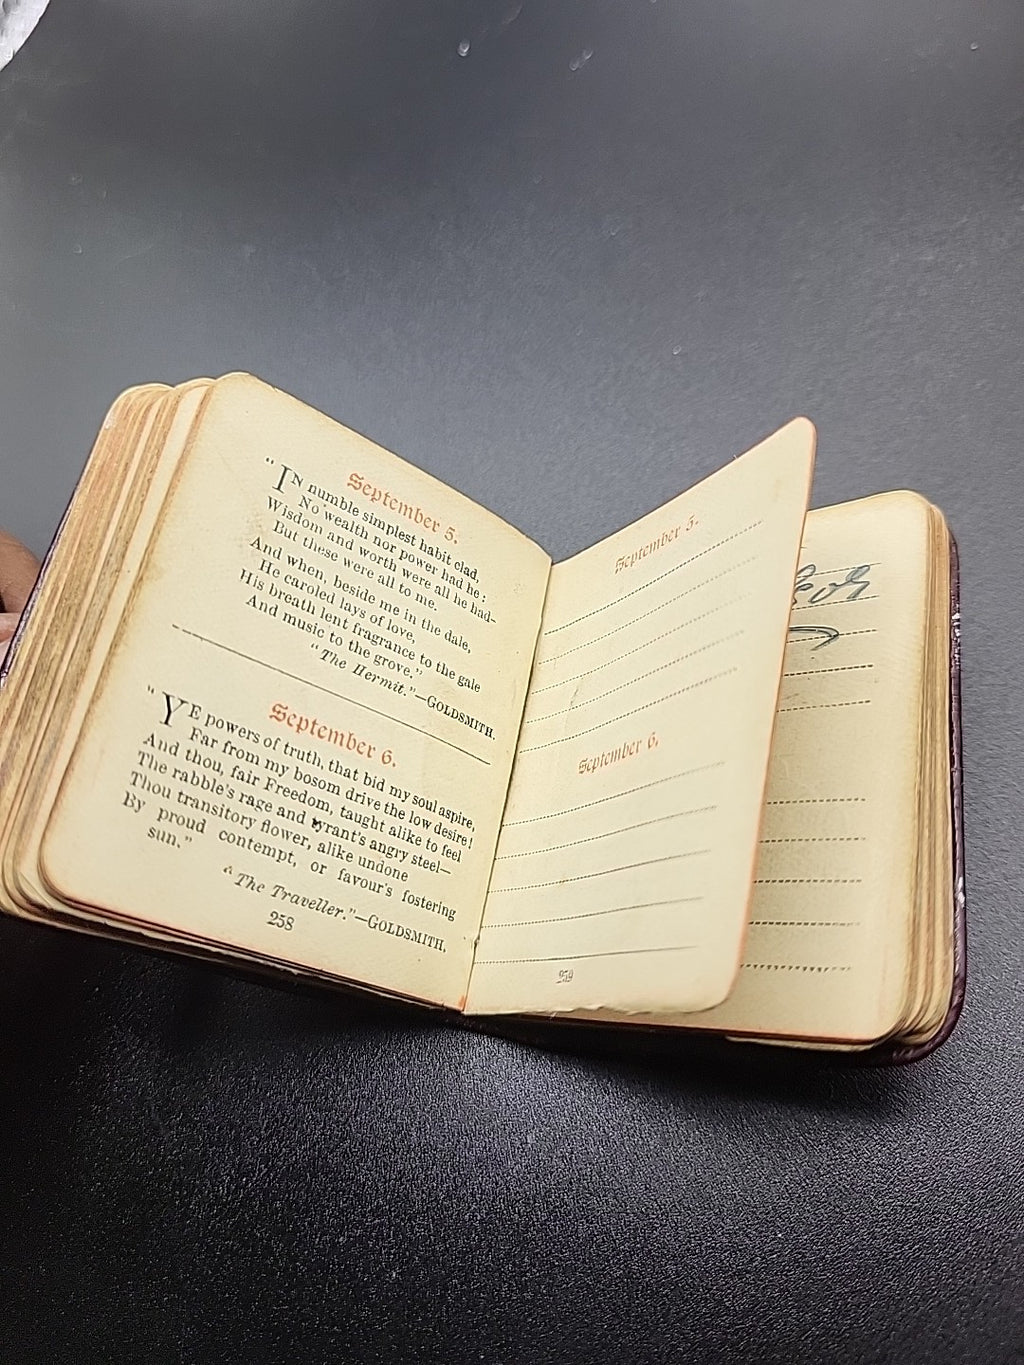 September 5.
“IN numble simplest habit clad,
No wealth nor power had he;
Wisdom and worth were all he had—
But these were all to me.
And when, beside me in the dale,
He caroled lays of love,
His breath lent fragrance to the gale
And music to the grove.”
“The Hermit.”—GOLDSMITH.
September 6.
“YE powers of truth, that bid my soul aspire,
Far from my bosom drive the low desire!
And thou, fair Freedom, taught alike to feel
The rabble's rage and tyrant's angry steel—
Thou transitory flower, alike undone
By proud contempt, or favour's fostering
sun.”
“The Traveller.”—GOLDSMITH.
258
September 5.
September 6.
259